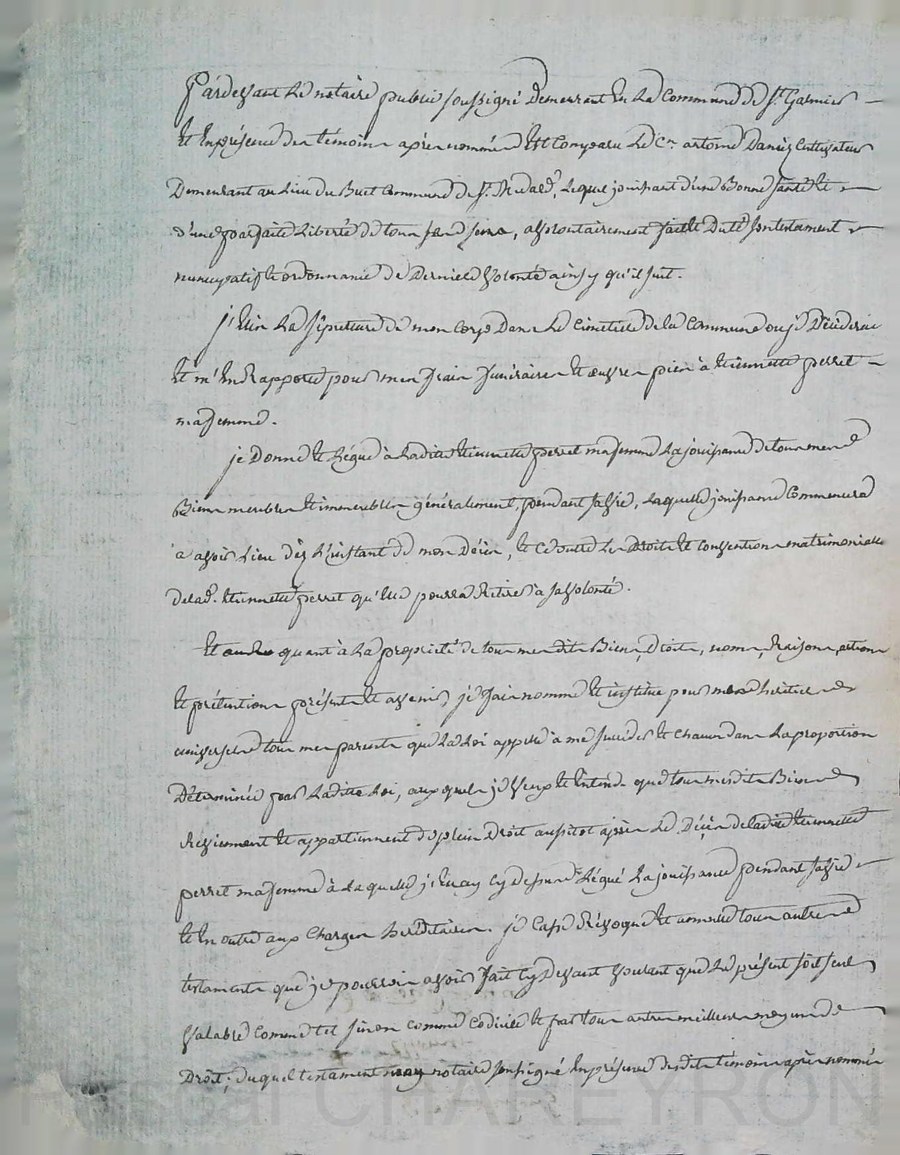 Pardevant Le notaire public soussigné Demeurant En La Commune de St. Galmier
Et En présence des témoins après nommés Est Comparu Le Cn. antoine Daniez Cultivateur
Demeurant au Lieu du Buet Commune de St. Médard, Lequel jouissant d'une Bonne santé et
d'une parfaite Liberté de tous ses sens, a volontairement fait et Dicté son testament
nuncupatif et ordonnance de Derniere volonté ainsy qu'il suit.
j'Elis La sépulture de mon Corps Dans Le Cimetiere de la Commune ou je Décéderai
Et m'En Rapporte pour mes frais funéraires Et œuvres pies à Etiennette perret
ma femme.
je Donne Et Légue à Ladite Etiennette perret ma femme La jouissance de tous mes
Biens meubles Et immeubles généralement, pendant sa vie, Laquelle jouissance Commencera
a avoir Lieu dès L'instant de mon Décès, Et Ce outre Les Droits Et Conventions matrimoniales
de lad. Etiennette perret qu'Elle pourra Retirer à sa volonté.
Et quant à La propriété de tous mesdits Biens, Droits, noms, Raisons, actions
Et prétentions présents Et avenir, je fais nomme Et institue pour mes héritiers
universels tous mes parents que La Loi appelle à me succéder Et Chacun dans La proportion
Déterminée par Laditte Loi, auxquels je veux Et Entends que tous mesdits Biens
Reviennent Et appartiennent de plein Droit aussitot après Le Décès de ladite Etiennette
perret ma femme à Laquelle j'En ay Cy dessus Légué La jouissance pendant sa vie
Et En outre aux Charges héréditaires. je Casse Révoque Et annulle tous autres
testaments que je pourrois avoir fait Cy Devant voulant que Le présent soit seul
valable Comme tel sinon comme Codicile Et par tous autres meilleurs moyens de
Droit; duquel testament moy notaire soussigné En présence desdits témoins après nommés
CHAREYRON